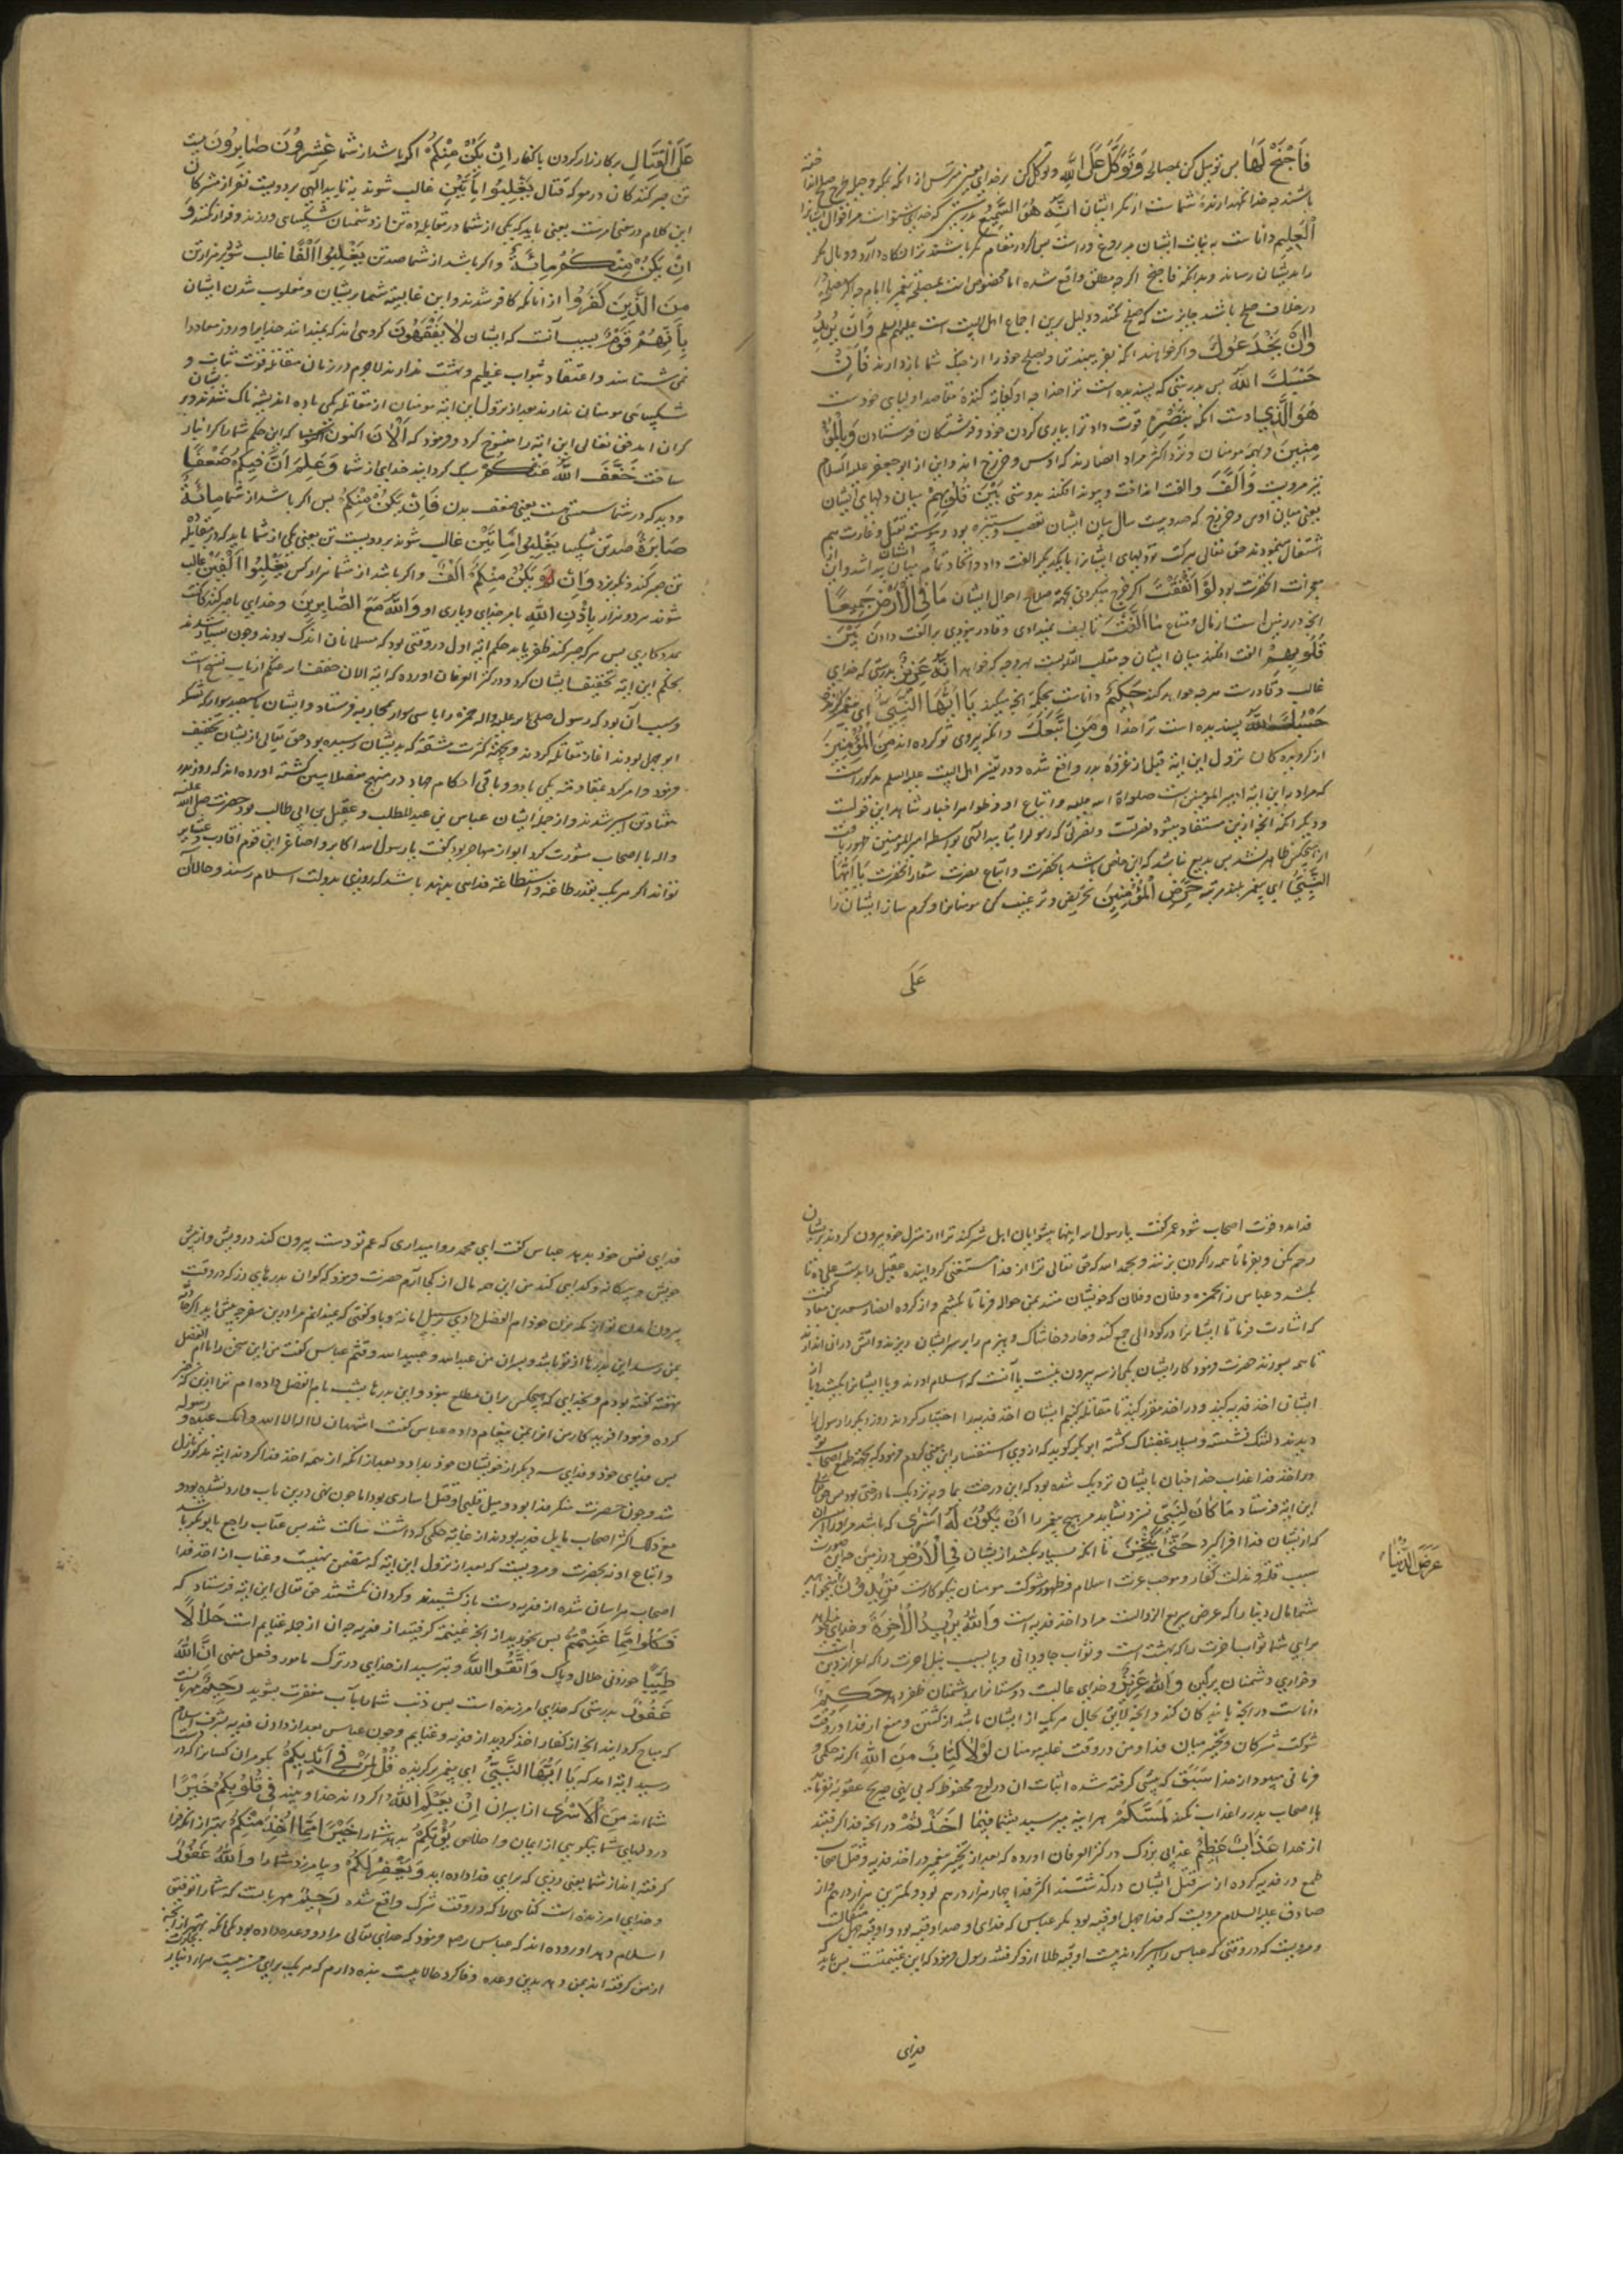 فَاجْنَحْ لَهَا پس تو میل کن بمصالحه وَتَوَكَّلْ عَلَى اللَّهِ و توکل کن بر خدای
باشند چه خدا نگهدارنده شماست از مکر ایشان إِنَّهُ هُوَ السَّمِيعُ بدرستی که خدای شنواست مر اقوال ایشانرا
الْعَلِيمُ داناست به نیات ایشان
را بدیشان رساند و بدانکه فاجنح اگر چه مطلق واقع شده اما مخصوص است بمصلحتی
در خلاف صلح باشد جایز نیست که صلح کنند و دلیل برین اجماع اهل البیت است علیهم السلم وَإِنْ يُرِيدُوا
أَنْ يَخْدَعُوكَ و اگر خواهند آنکه بفریبند ترا و بصلح خود را از جنک شما بازدارند فَإِنَّ
حَسْبَكَ اللَّهُ پس بدرستی که پسندیده است ترا خدا چه او کفایت کننده مقاصد اولیای خودست
هُوَ الَّذِي اوست آنکه بِنَصْرِهِ قوت داد ترا بیاری کردن خود و فرشتگان فرستادن وَبِالْمُؤْ
مِنِينَ و بهمه مومنان و نزد اکثر مراد انصارند که اوس و خزرج اند و این از ابو جعفر علیه السلام
نیز مرویست وَأَلَّفَ و الفت انداخت و پیوند افکند بدوستی بَيْنَ قُلُوبِهِمْ میان دلهای ایشان
یعنی میان اوس و خزرج که صد و بیست سال میان ایشان تعصب و ستیزه بود و پیوسته بقتل و غارت هم
اشتغال مینمودند حق تعالی ببرکت تو دلهای ایشانرا بایکدیگر الفت داد و اتحاد تمام میان ایشان پیدا شد و این
معجزات آنحضرت بود لَوْ أَنْفَقْتَ اگر خرج میکردی بجهة صلاح احوال ایشان مَا فِي الْأَرْضِ جَمِيعًا
آنچه در زمین است از مال و متاع مَا أَلَّفْتَ تالیف نمیدادی و قادر نبودی بر الفت دادن بَيْنَ
قُلُوبِهِمْ الفت افکند میان ایشان و مقلب القلوبست بهر وجه که خواهد إِنَّهُ عَزِيزٌ بدرستی که خدای
غالب و قادرست هر چه خواهد کند حَكِيمٌ داناست بحکمت آنچه میکند يَا أَيُّهَا النَّبِيُّ ای پیغمبر
حَسْبُكَ اللَّهُ پسندیده است ترا خدا وَمَنِ اتَّبَعَكَ و آنکه پیروی تو کرده اند مِنَ الْمُؤْمِنِينَ
از گرویدگان نزول این ایة قبل از غزوه بدر واقع شده و در تفسیر اهل البیت علیه السلم مذکور است
که مراد باین ایة امیر المومنین است صلواة الله علیه و اتباع او
و دیگر آنکه آنچه ازین مستفاد میشود نصرتست و نصرتی که رسول را بتایید الهی بواسطه امیر المومنین ظهور یافت
از هیچکس ظاهر نشد پس بدیع نباشد که این مختص باشد بآنحضرت و اتباع نصرت شعار آنحضرت يَا أَيُّهَا
النَّبِيُّ ای پیغمبر بلند مرتبه حَرِّضِ الْمُؤْمِنِينَ تحریض و ترغیب کن مومنانرا و گرم ساز ایشان را
عَلَى
عَلَى الْقِتَالِ بر کارزار کردن با کفار إِنْ يَكُنْ مِنْكُمْ اگر باشد از شما عِشْرُونَ صَابِرُونَ بیست
تن صبر کنندگان در معرکه قتال يَغْلِبُوا مِائَتَيْنِ غالب شوند به تایید الهی بر دویست نفر از مشرکان
این کلام در معنی امرست یعنی باید که یکی از شما در مقابله ده تن از دشمنان شکیبایی ورزند و فرار نکنند وَ
إِنْ يَكُنْ مِنْكُمْ مِائَةٌ و اگر باشد از شما صد تن يَغْلِبُوا أَلْفًا غالب شوند بر هزار تن
مِنَ الَّذِينَ كَفَرُوا از آنانکه کافر شدند و این غالبیة شما بریشان و مغلوب شدن ایشان
بِأَنَّهُمْ قَوْمٌ بسبب آنست که ایشان لَا يَفْقَهُونَ گروهی اند که نمیدانند خدایرا و روز معاد را
نمی شناسند و اعتقاد بثواب عظیم و بهشت ندارند لاجرم در زمان مقاتله قوت ثبات و
شکیبائی مومنان ندارند بعد از نزول این ایة مومنان از مقاتله یکی باده اندیشه ناک شدند و بریشان
گران آمد حق تعالی این ایة را منسوخ کرد و فرمود که الْآنَ اکنون که این حکم شما را گرانبار
ساخت خَفَّفَ اللَّهُ عَنْكُمْ سبک گردانید خدای از شما وَعَلِمَ أَنَّ فِيكُمْ ضَعْفًا
و دید که در شما سستی هست یعنی ضعف بدن فَإِنْ يَكُنْ مِنْكُمْ پس اگر باشد از شما مِائَةٌ
صَابِرَةٌ صد تن شکیبا يَغْلِبُوا مِائَتَيْنِ غالب شوند بر دویست تن یعنی یکی از شما باید که در مقابله دو
تن صبر کند و نگریزد وَإِنْ يَكُنْ مِنْكُمْ أَلْفٌ و اگر باشد از شما هزار کس يَغْلِبُوا أَلْفَيْنِ غالب
شوند بر دو هزار بِإِذْنِ اللَّهِ بامر خدای و یاری او وَاللَّهُ مَعَ الصَّابِرِينَ و خدای با صبر کنندگانست
بمددکاری پس هر که صبر کند ظفر یابد حکم ایة اول در وقتی بود که مسلمانان اندک بودند و چون بسیار شدند
بحکم این ایة تخفیف ایشان کرد و در کنز العرفان آورده که ایة الان خفف الله عنکم از باب نسخ است
و سبب آن بود که رسول صلی الله علیه واله حمزه را با سی سوار بمحاربه فرستاد و ایشان با سیصد سوار که لشکر
ابو جهل بودند آغاز مقاتله کردند و بجهة کثرت مشقت که بدیشان رسیده بود حق تعالی از ایشان تخفیف
فرمود و امر کرد بمقاومت یکی با دو و باقی احکام جهاد در منهج مفصلا مبین گشته آورده اند که روز بدر
هفتاد تن اسیر شدند و از جمله ایشان عباس بن عبد المطلب و عقیل بن ابی طالب بود حضرت صلی الله علیه
واله با اصحاب مشورت کرد ابوبکر از مهاجر بود گفت یا رسول الله اکابر و اصاغر این قوم اقارب و عشایر
تواند اگر هر یک بقدر طاقة و استطاعة فدایی بدهند باشد که روزی بدولت اسلام رسند و حالا آن
فدا مدد قوت اصحاب شود عمر گفت یا رسول الله اینها پیشوایان اهل شرکند ترا از منزل خود بیرون کردند بریشان
رحم مکن و بفرما تا همه را گردن بزنند و بحمد الله که حق تعالی ترا از فدا مستغنی گردانیده عقیل را بدست علی ده تا
بکشد و عباس را بحمزه و فلان و فلان که خویشان منند بمن حواله فرما تا بکشم و از گروه انصار سعد بن معاذ گفت
که اشارت فرما تا ایشانرا در گودالی جمع کنند و خار و خاشاک و هیزم را بر سر ایشان ریزند و آتش در آن اندازند
تا همه بسوزند حضرت فرمود کار ایشان یکی از سه بیرون نیست یا آنست که اسلام آورند و یا ایشانرا بکشید و یا از
ایشان اخذ فدیه کنید
دیدند دلتنک نشسته و بسیار غضبناک گشته ابوبکر گوید که از وی استفسار این معنی کردم فرمود که بجهة طمع اصحاب تو
در اخذ فدا عذاب خدا چنان بایشان نزدیک شده بود که این درخت بما و به نزدیک ما درختی بود پس حق تعالی
این ایة فرستاد مَا كَانَ لِنَبِيٍّ نسزد و نشاید هیچ پیغمبر را أَنْ يَكُونَ لَهُ أَسْرَى که باشد مر او را اسیران
که از ایشان فدا فرا گیرد حَتَّى يُثْخِنَ تا آنکه بسیار بکشد از ایشان فِي الْأَرْضِ در زمین
سبب قلة و مذلت کفار و موجب عزت اسلام و ظهور شوکت مومنان
عَرَضَ الدُّنْيَا
شما مال دنیا را که عرض سریع الزوالست مراد اخذ فدیه است وَاللَّهُ يُرِيدُ الْآخِرَةَ و خدای
برای شما ثواب آخرت را که بهشت است و ثواب جاودانی و یا سبب نیل آخرت را که اعزاز دین است
و خواری دشمنان بی دین وَاللَّهُ عَزِيزٌ و خدای غالبست دوستانرا بر دشمنان ظفر دهد حَكِيمٌ
داناست در آنچه بایشان کند و آنچه لایق بحال هر یک از ایشان باشد از کشتن و منع از فدا در وقت
شوکت مشرکان و تخییر میان فدا و من در وقت غلبه مومنان لَوْلَا كِتَابٌ مِنَ اللَّهِ اگر نه حکمی و
فرمانی میبود از خدا سَبَقَ که پیشی گرفته شده اثبات آن در لوح محفوظ که بی نهی صریح عقوبه نفرماید
یا اصحاب بدر را عذاب نکند لَمَسَّكُمْ هر آینه میرسید بشما فِيمَا أَخَذْتُمْ در آنچه فدا گرفتید
از خدا عَذَابٌ عَظِيمٌ عذابی بزرک در کنز العرفان آورده که بعد از تخییر پیغمبر در اخذ فدیه و قتل اصحاب
طمع در فدیه کرده از سر قتل ایشان درگذشتند اکثر فدا چهار هزار درهم بود و کمترین هزار درهم و از
صادق علیه السلام مرویست که فدا چهل اوقیه بود مگر عباس که فدای او صد اوقیه بود و اوقیه چهل مثقالست
و مرویست که در وقتی که عباس را اسیر کردند بیست اوقیه طلا از و گرفتند رسول فرمود که این غنیمتست پس باید که
فدای
فدای نفس خود بدهد عباس گفت ای محمد روا میداری که عم تو دست بیرون کند در پیش
خویش و بیکانه و گدایی کند من این همه مال از کجا آرم حضرت فرمود که کو آن بدرهای زر که در وقت
بیرون آمدن
بمن رسد این بدرها از تو باشد و پسران من عبد الله و عبید الله و قثم عباس گفت من این سخن را با ام الفضل
نهفته گفته بودم و بخدایی که هیچکس بران مطلع نبود و این بدرها بشب بام الفضل داده ام ترا ازین که خبر
کرده فرمود آفریدگار من اعلام داده عباس گفت اشهد ان لا اله الا الله و انک عبده و رسوله
پس فدای خود و فدای سه دیگر از خویشان خود بداد و بعد از آنکه از همه اخذ فدا کردند ایة مذکور نازل
شد و چون حضرت منکر فدا بود و میل قلبی او قتل اساری بود اما چون نهی درین باب وارد نشده بود و
مع ذلک اکثر اصحاب مایل فدیه بودند از غایة حلمی که داشت ساکت شد پس عتاب راجع بابوبکر باشد
و اتباع او نه بحضرت و مرویست که بعد از نزول این ایة که متضمن نهیست و عتاب از اخذ فدا
اصحاب هراسان شده از فدیه دست باز کشیدند و گرد آن نگشتند حق تعالی این ایة فرستاد که
فَكُلُوا مِمَّا غَنِمْتُمْ پس بخورید از آنچه غنیمة گرفتید از فدیه چه آن از جمله غنایم است حَلَالًا
طَيِّبًا خوردنی حلال و پاک وَاتَّقُوا اللَّهَ و بترسید از خدای در ترک مامور و فعل منهی إِنَّ اللَّهَ
غَفُورٌ بدرستی که خدای آمرزنده است پس ذنب شما را بآب مغفرت بشوید رَحِيمٌ مهربانست
که مباح گردانید آنچه از کفار اخذ کردید از فدیه و غنایم و چون عباس بعد از دادن فدیه بشرف اسلام
رسید ایة آمد که يَا أَيُّهَا النَّبِيُّ ای پیغمبر برگزیده قُلْ لِمَنْ فِي أَيْدِيكُمْ بگو مر آن کسانرا که در
شما اند مِنَ الْأَسْرَى از اسیران إِنْ يَعْلَمِ اللَّهُ اگر داند خدا و بیند فِي قُلُوبِكُمْ خَيْرًا
در دلهای شما نیکویی از ایمان و اخلاص يُؤْتِكُمْ بدهد شما را خَيْرًا مِمَّا أُخِذَ مِنْكُمْ بهتر از آنچه فرا
گرفته اند از شما یعنی زری که برای فدا داده اید وَيَغْفِرْ لَكُمْ و بیامرزد شما را وَاللَّهُ غَفُورٌ
و خدای آمرزنده است گناهی را که در وقت شرک واقع شده رَحِيمٌ مهربانست که شما را توفیق
اسلام دهد آورده اند که عباس فرمود که خدای تعالی مرا دو وعده داده بود یکی آنکه بهتر از آنچه
از من گرفته اند بمن دهد بدین وعده وفا کرد حالا بیست بنده دارم که هر یک برای من بیست هزار دینار